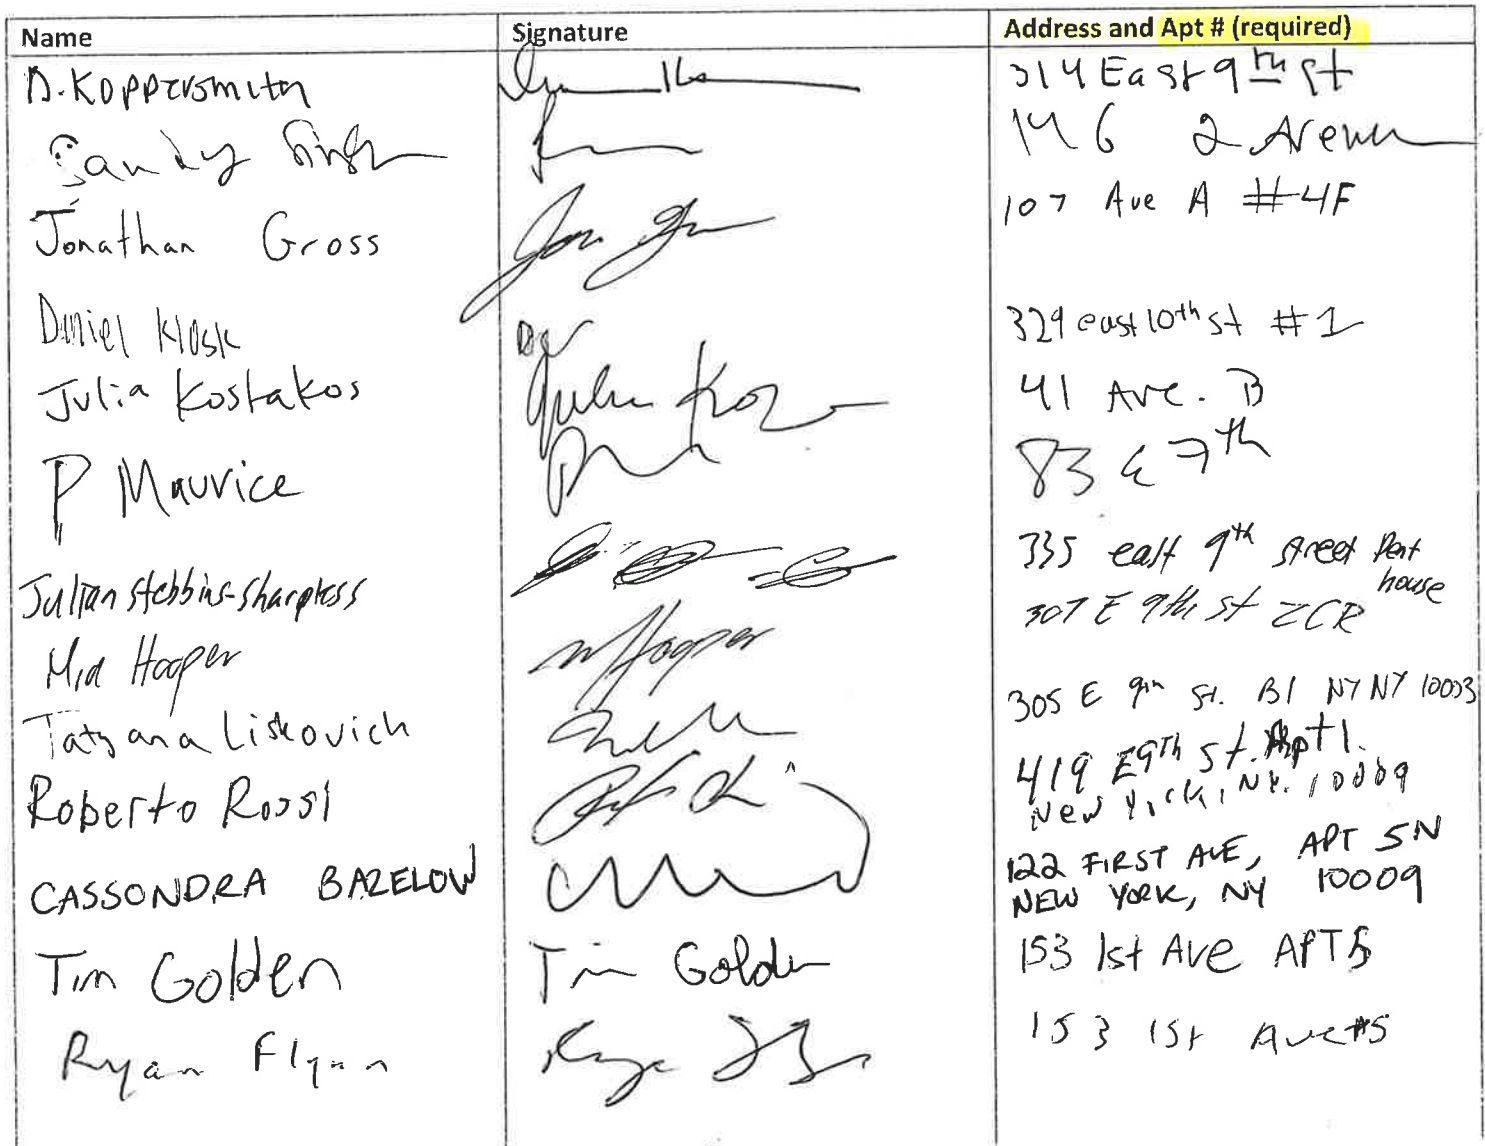 Name Signature Address and Apt # (required)
D. Koppersmith 314 East 9th St
Sandy Singh 146 2 Avenue
Jonathan Gross 107 Ave A #4F
Daniel Klosk 329 east 10th st #1
Julia Kostakos Julia Ko 41 Ave. B
P Maurice 83 E 7th
Julian Stebbins-Sharpless 335 east 9th street Pent
house
Mia Hooper M Hooper 307 E 9th St 2CR
Tatyana Liskovich 305 E 9th St. B1 NY NY 10003
Roberto Rossi 419 E 9Th St. Apt 1.
New York, NY. 10009
CASSONDRA BAZELOW 122 FIRST AVE, APT 5N
NEW YORK, NY 10009
Tim Golden Tim Golden 153 1st Ave APT 5
Ryan Flynn 153 1st Ave #5